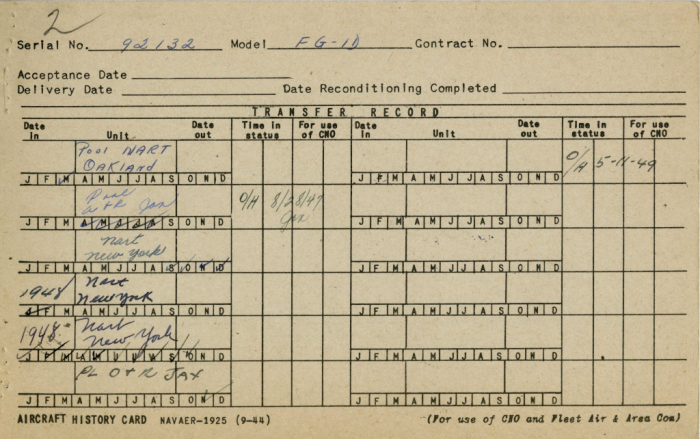 2
Serial No. 92132 Model FG-1D Contract No.
Acceptance Date
Delivery Date Date Reconditioning Completed
TRANSFER RECORD
Date in Unit Date out Time in status For use of CNO Date in Unit Date out Time in status For use of CNO
Pool NART
OAKland
O/H 5-11-49
J F M A M J J A S O N D J F M A M J J A S O N D
Pool
O/H 8/28/47
Jax
J F M A M J J A S O N D J F M A M J J A S O N D
Nart
New York
J F M A M J J A S O N D J F M A M J J A S O N D
1948 Nart
New York
J F M A M J J A S O N D J F M A M J J A S O N D
1948 Nart
New York
J F M A M J J A S O N D J F M A M J J A S O N D
PL O+R JAX
J F M A M J J A S O N D J F M A M J J A S O N D
AIRCRAFT HISTORY CARD NAVAER-1925 (9-44) (For use of CNO and Fleet Air & Area Com)